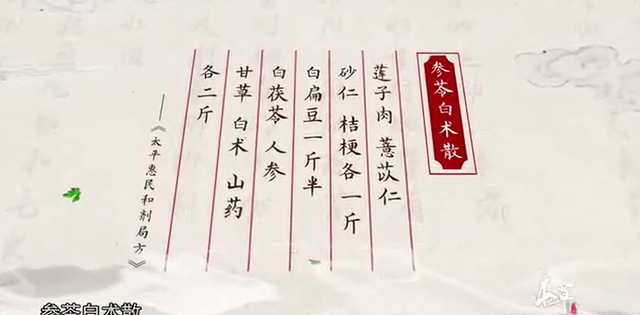 参苓白术散
莲子肉 薏苡仁
砂仁 桔梗各一斤
白扁豆一斤半
白茯苓 人参
甘草 白术 山药
各二斤
——《太平惠民和剂局方》
参苓白术散
本草